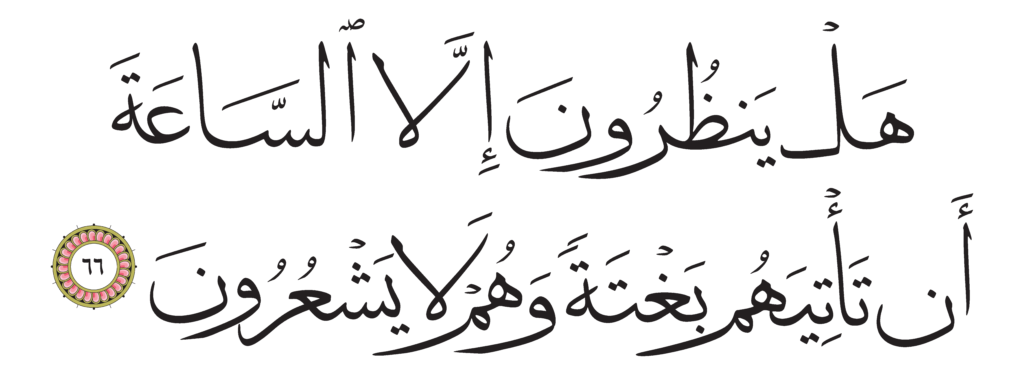 هَلۡ يَنظُرُونَ إِلَّا ٱلسَّاعَةَ
أَن تَأۡتِيَهُم بَغۡتَةٗ وَهُمۡ لَا يَشۡعُرُونَ ٦٦